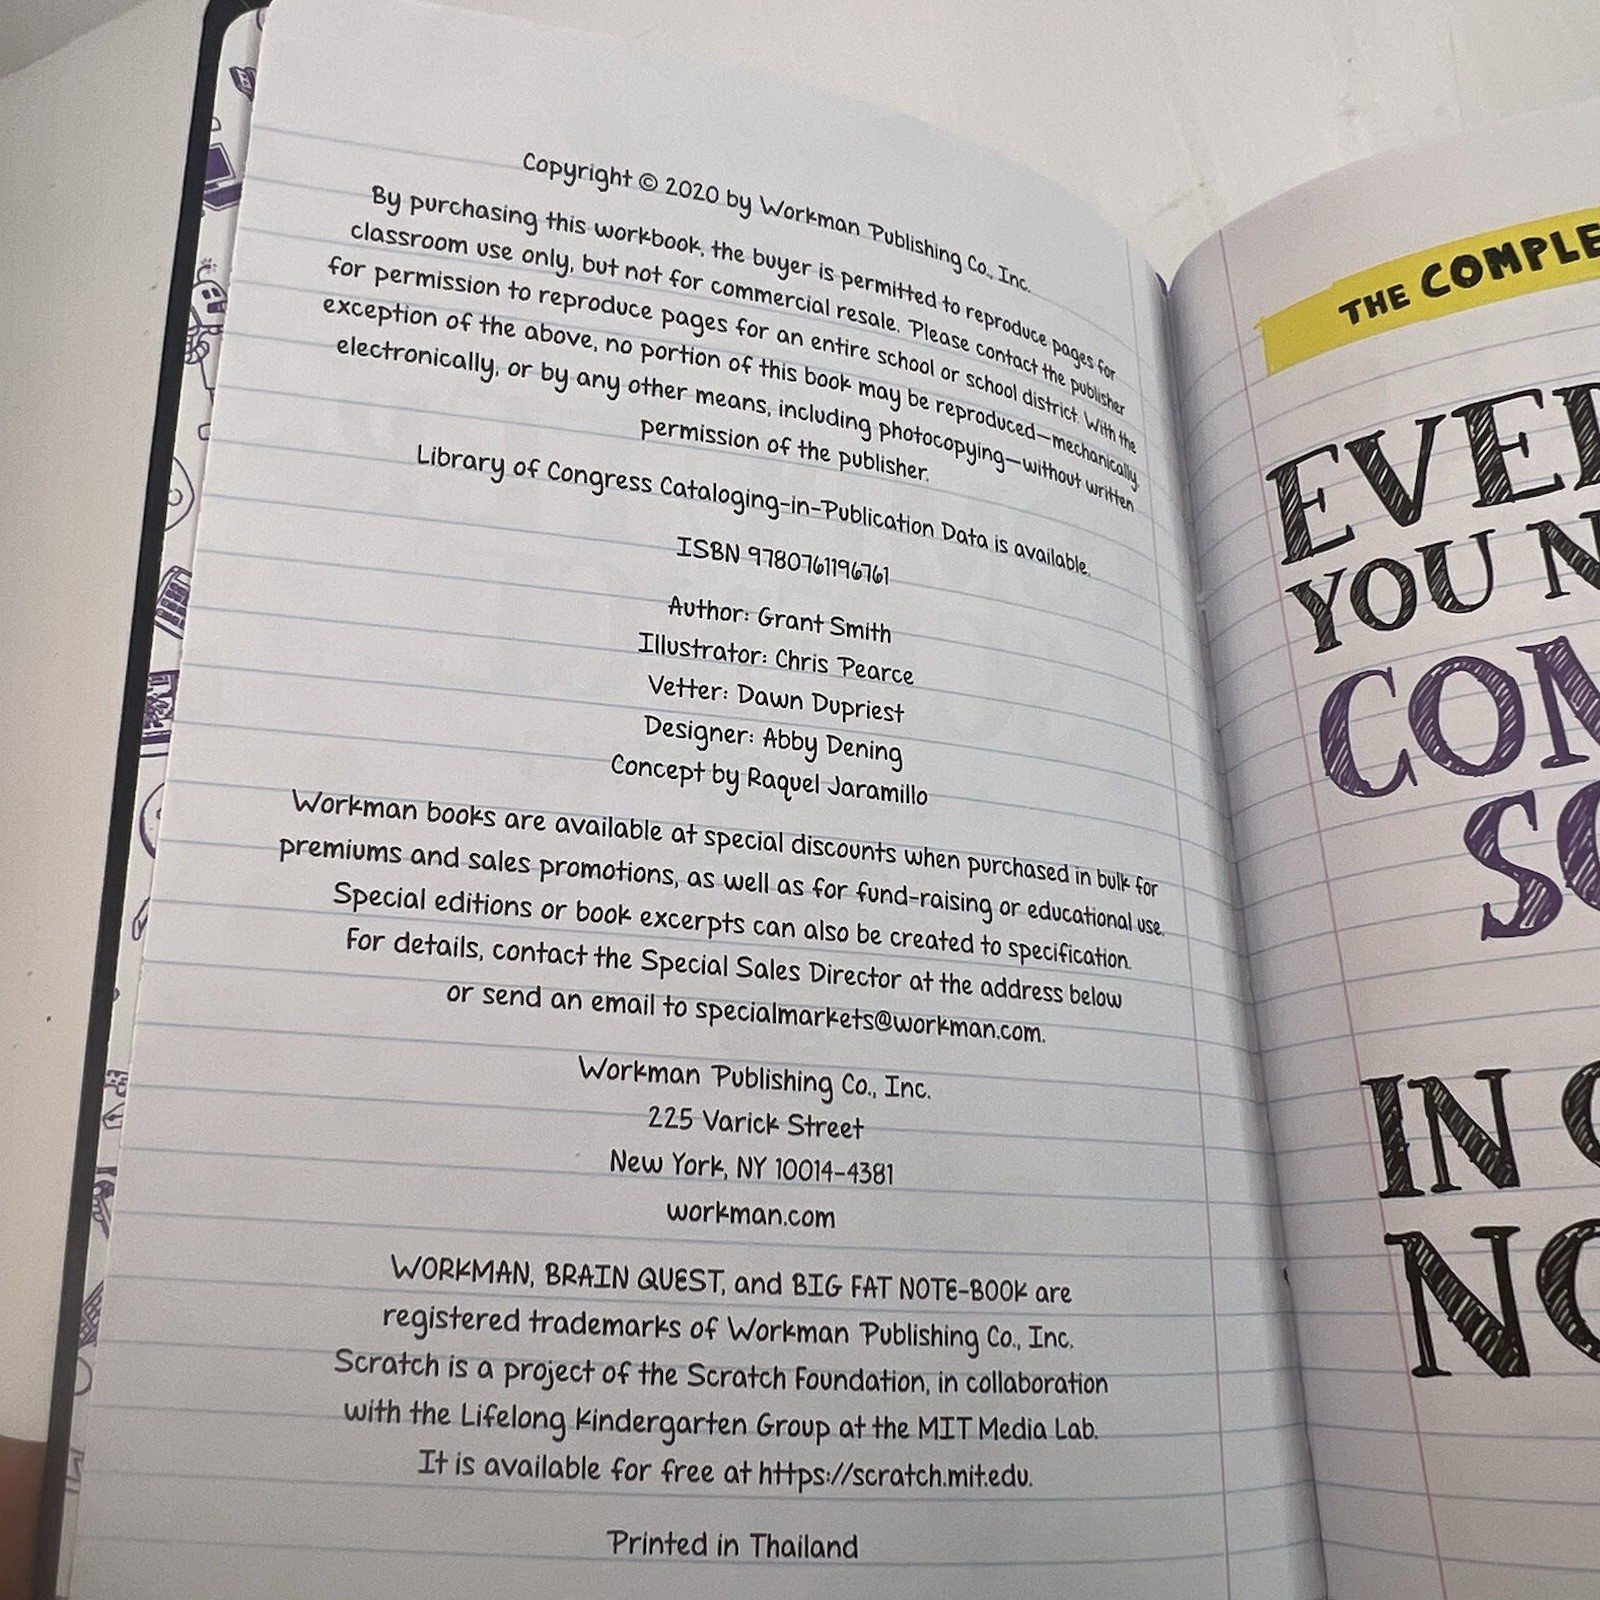 Copyright © 2020 by Workman Publishing Co., Inc.
By purchasing this workbook, the buyer is permitted to reproduce pages for
classroom use only, but not for commercial resale. Please contact the publisher
for permission to reproduce pages for an entire school or school district. With the
exception of the above, no portion of this book may be reproduced—mechanically,
electronically, or by any other means, including photocopying—without written
permission of the publisher.
Library of Congress Cataloging-in-Publication Data is available.
ISBN 9780761196761
Author: Grant Smith
Illustrator: Chris Pearce
Vetter: Dawn Dupriest
Designer: Abby Dening
Concept by Raquel Jaramillo
Workman books are available at special discounts when purchased in bulk for
premiums and sales promotions, as well as for fund-raising or educational use.
Special editions or book excerpts can also be created to specification.
For details, contact the Special Sales Director at the address below
or send an email to specialmarkets@workman.com.
Workman Publishing Co., Inc.
225 Varick Street
New York, NY 10014-4381
workman.com
WORKMAN, BRAIN QUEST, and BIG FAT NOTE-BOOK are
registered trademarks of Workman Publishing Co., Inc.
Scratch is a project of the Scratch Foundation, in collaboration
with the Lifelong Kindergarten Group at the MIT Media Lab.
It is available for free at https://scratch.mit.edu.
Printed in Thailand
THE COMPLE
EVE
YOU N
COM
SC
IN
NO